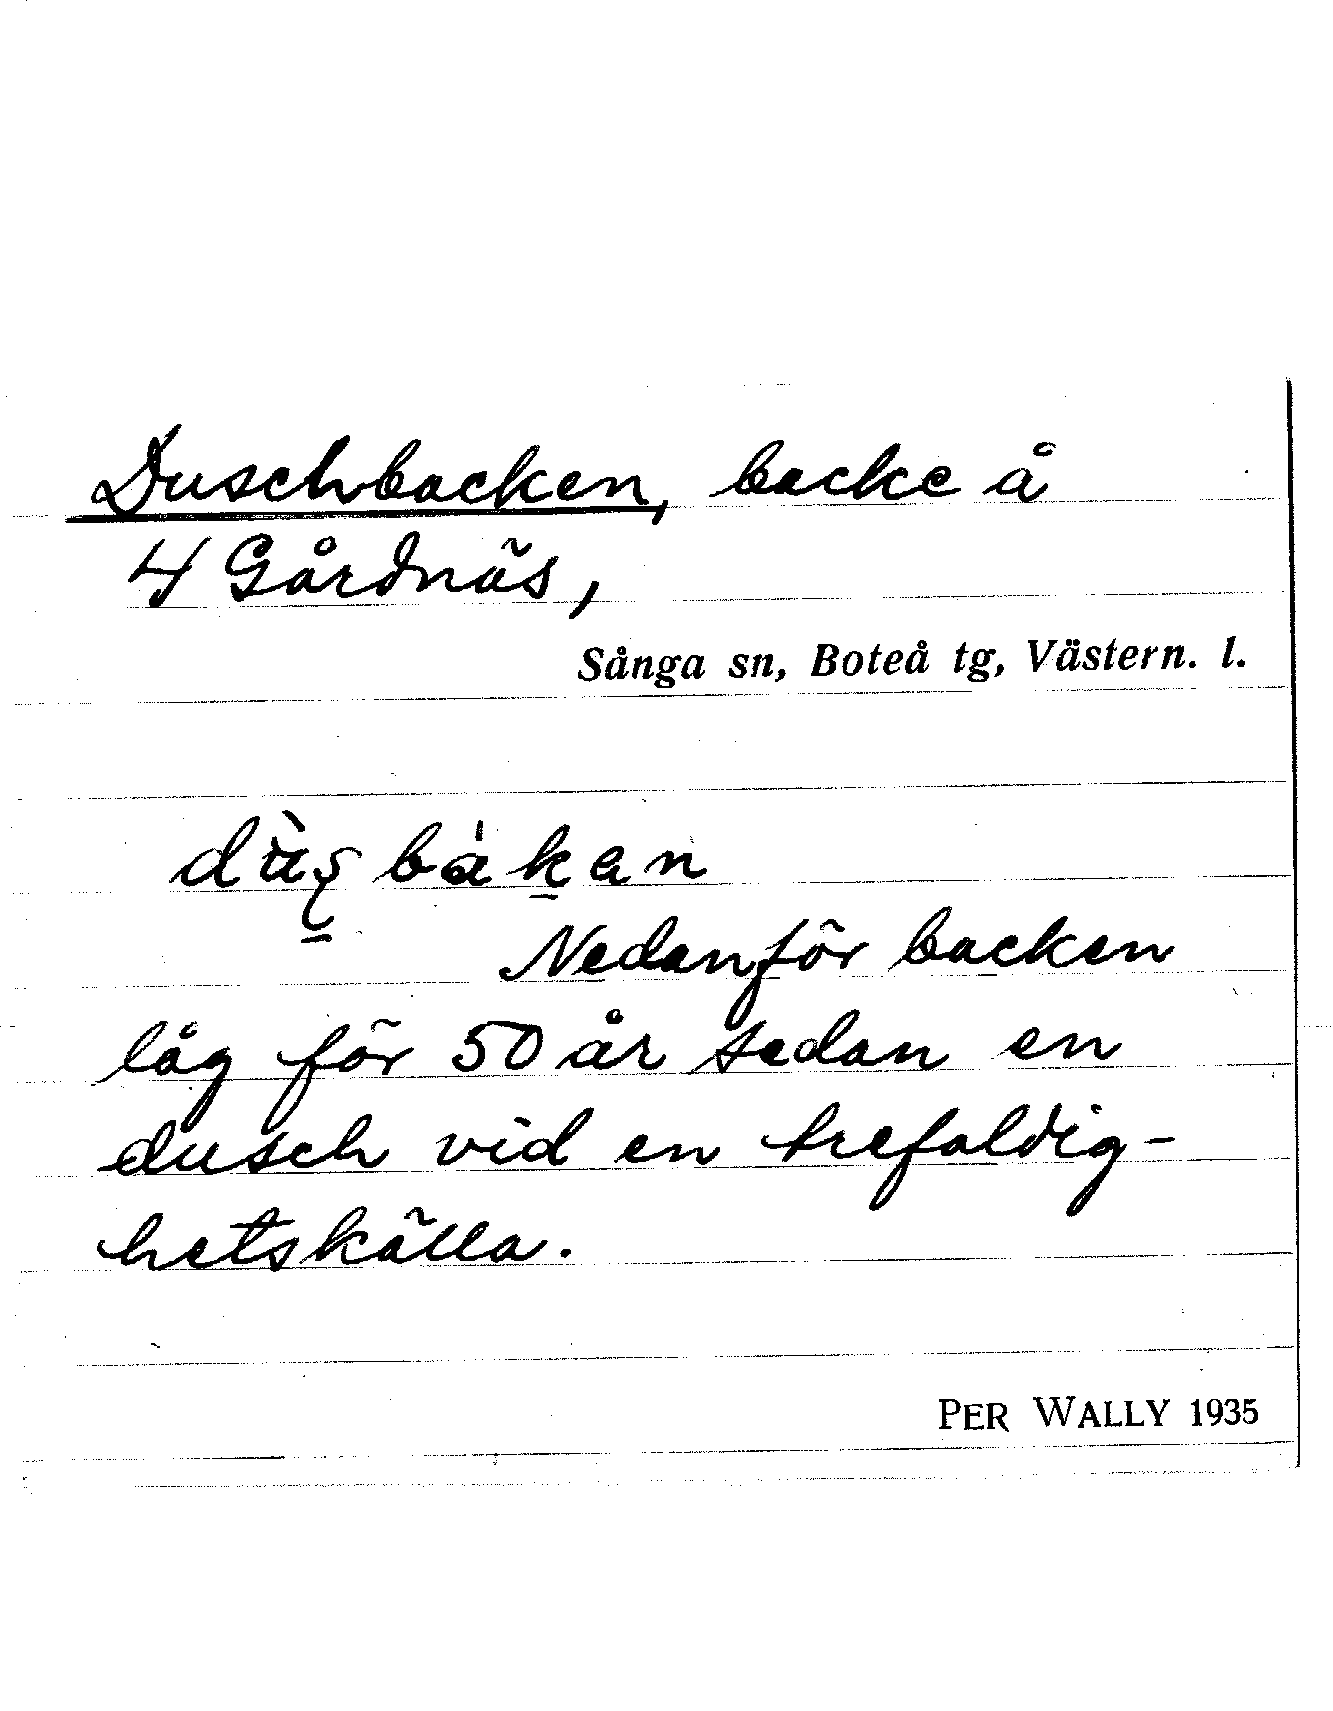 Duschbacken, backe å
4 Gårdnäs,
Sånga sn, Boteå tg, Västern. l.
Nedanför backen
låg för 50 år sedan en
dusch vid en trefaldig-
hetskälla.
PER WALLY 1935